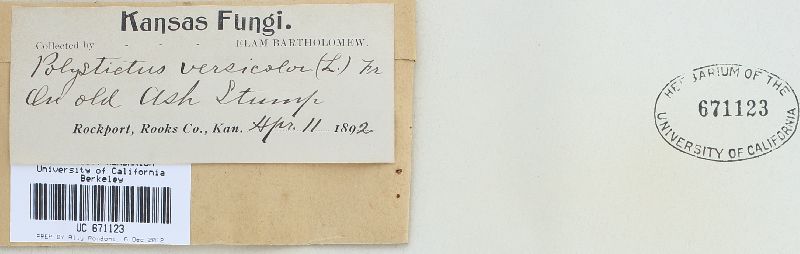 Kansas Fungi.
Collected by - - - ELAM BARTHOLOMEW.
Polystictus versicolor (L.) Fr
On old Ash Stump
Rockport, Rooks Co., Kan. Apr. 11 1892
University of California
Berkeley
UC 671123
HERBARIUM OF THE
671123
UNIVERSITY OF CALIFORNIA